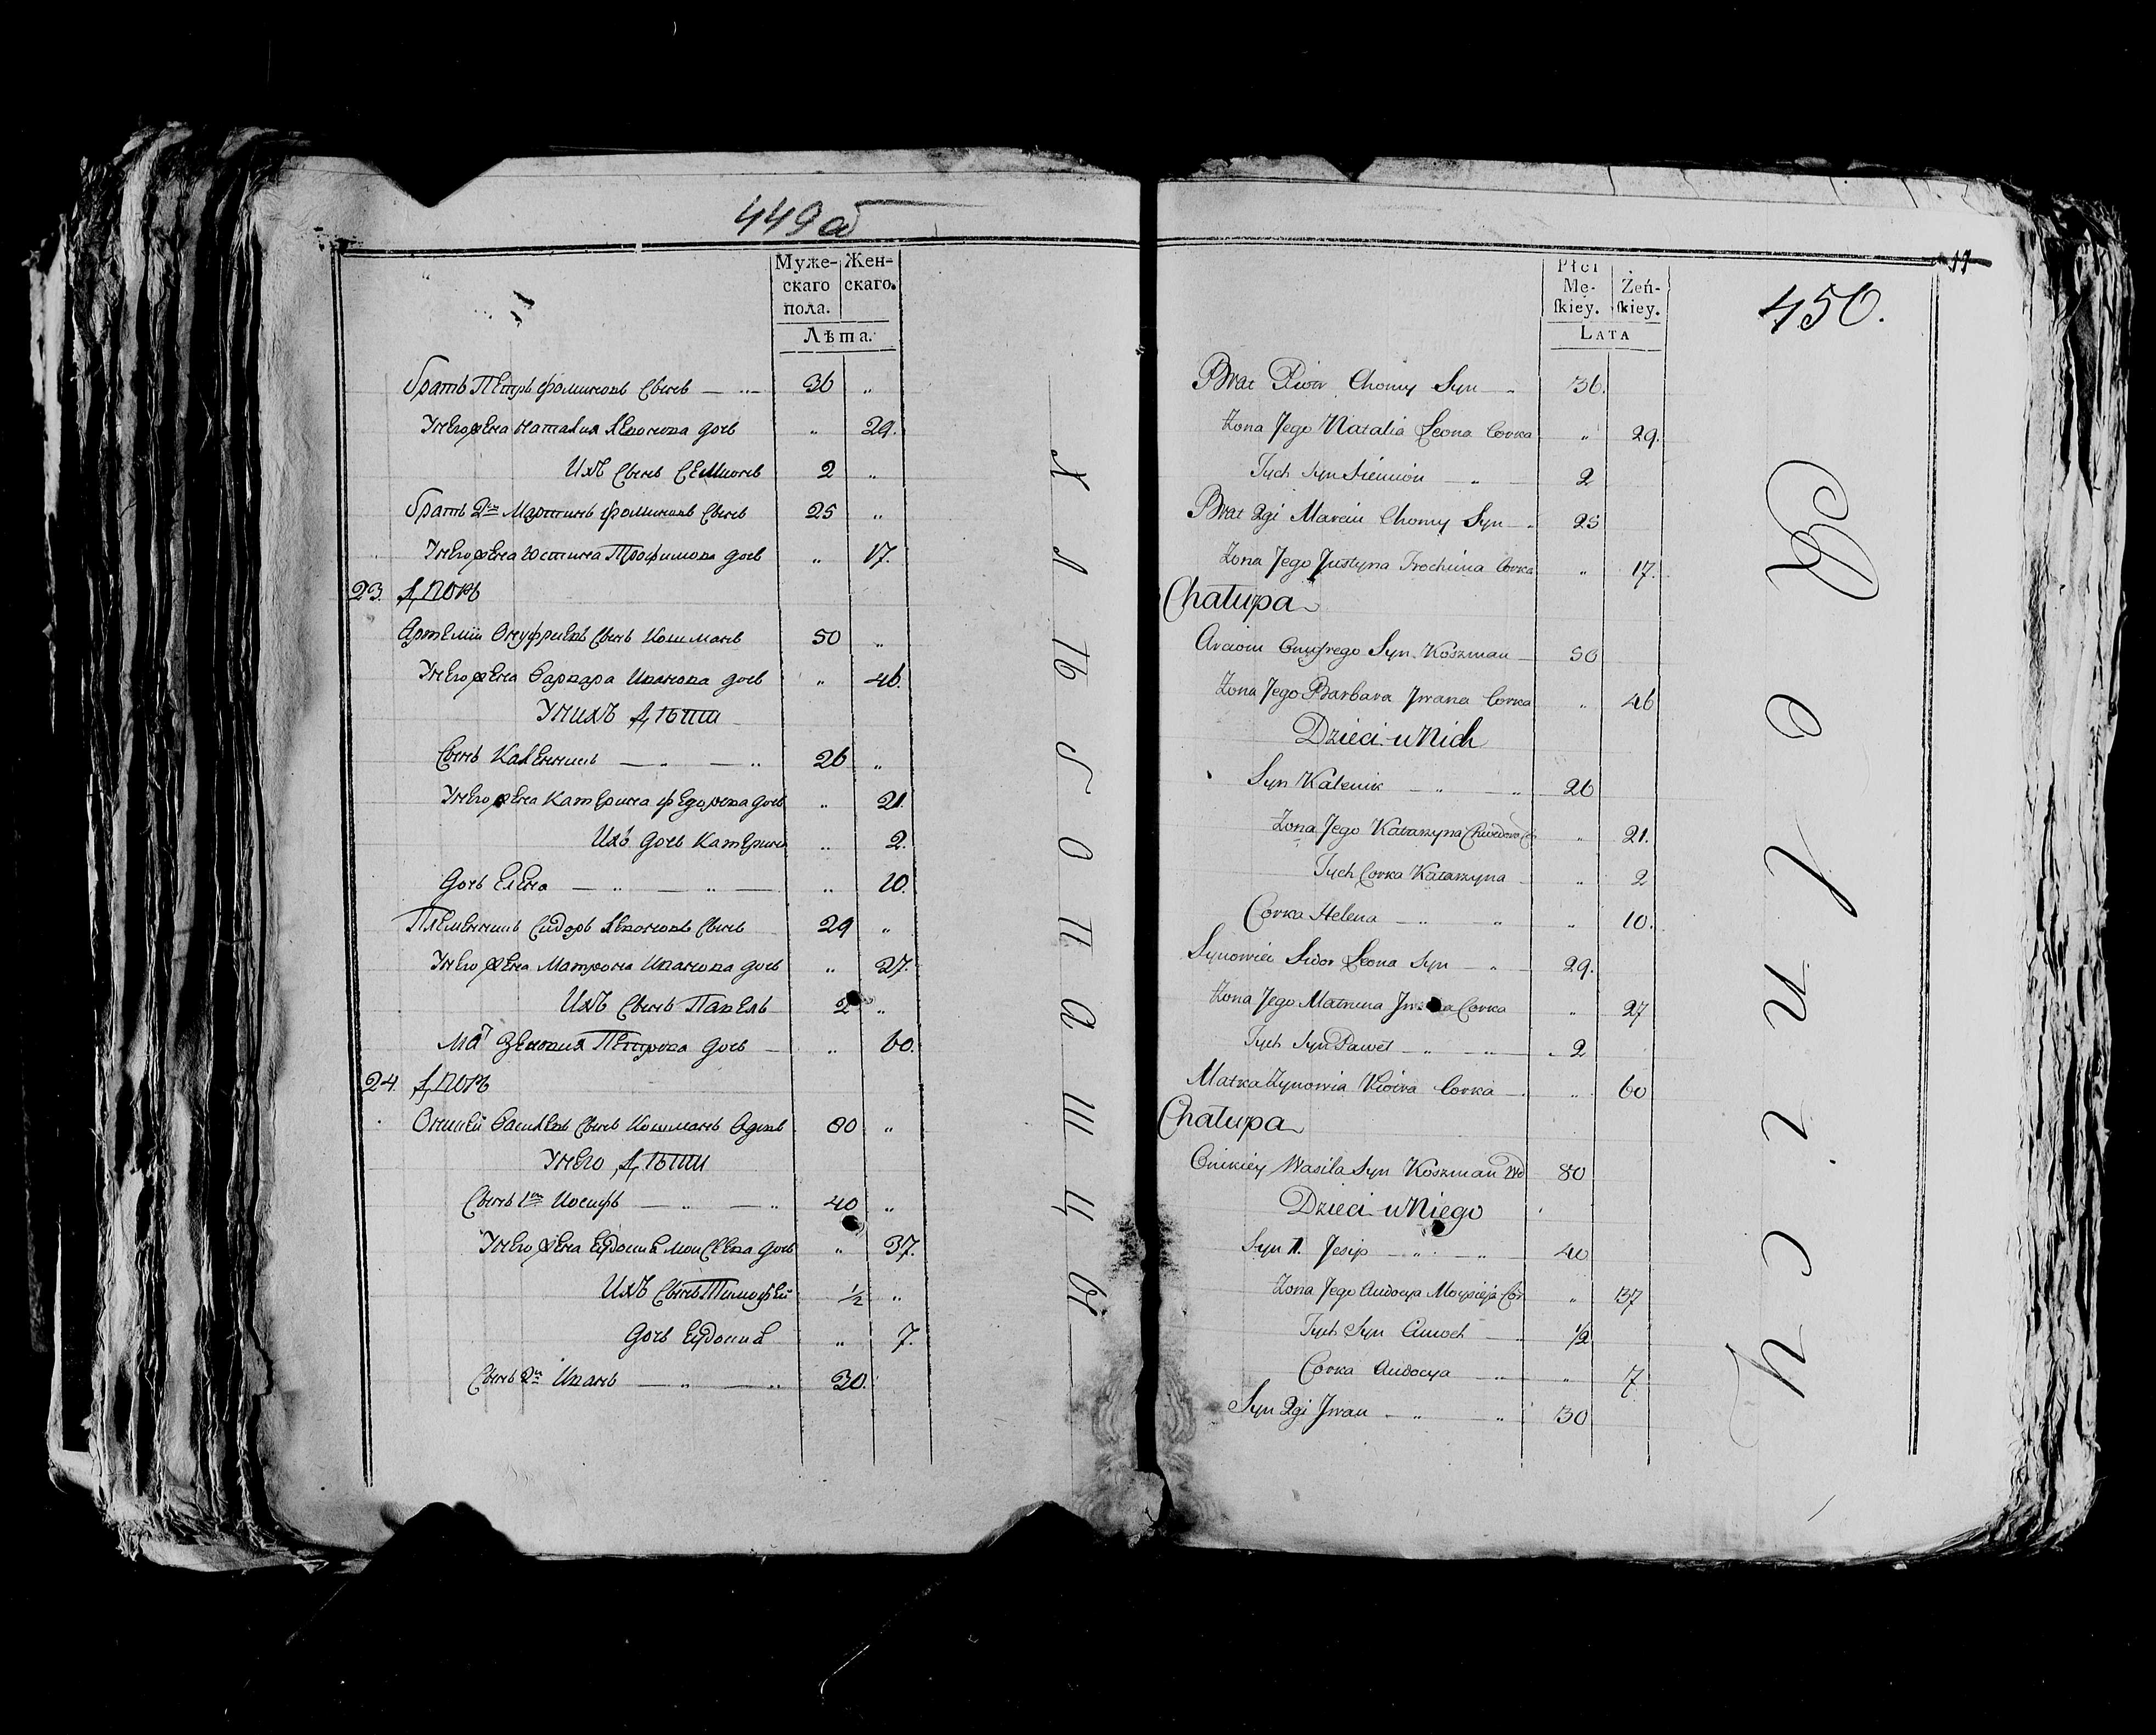 449об
Муже-
скаго
пола.
Жен-
скаго.
Лѣта.
Братъ Петръ Фоминовъ Сынъ 36 „
У него жена Наталия Леонова дочь „ 29.
Ихъ Сынъ Семионъ 2 „
Братъ 2й Мартинъ Фоминовъ Сынъ 25 „
У него жена Юстина Трофимова дочь „ 17.
23. Дворъ
Артемiи Онуфриевъ Сынъ Кошманъ 50 „
У него жена Варвара Иванова дочь „ 46.
У нихъ Дѣти
Сынъ Каленникъ 26 „
У него жена Катерина Федорова дочь „ 21.
Ихъ дочь Катерина „ 2.
Дочь Елена „ 10.
Племенникъ Сидоръ Леоновъ Сынъ 29 „
У него жена Матрона Иванова дочь „ 27.
Ихъ Сынъ Павелъ 2 „
Мат Зеновия Петрова дочь „ 60.
24. Дворъ
Оникей Василевъ Сынъ Кошманъ Вдовъ 80 „
У него Дѣти
Сынъ 1й Иосифъ 40 „
У него жена Евдокия Моисеева дочь „ 37.
Ихъ Сынъ Тимофей 1/2 „
Дочь Евдокия „ 7.
Сынъ 2й Иванъ 30.
Хлѣбопашцы
17
450.
Płci
Mę-
ſkiey.
Żeń-
ſkiey.
Lata
Brat Piotr Chomy Syn 36.
Żona Jego Natalia Leona Corka „ 29.
Tych Syn Siemion 2
Brat 2gi Marcin Chomy Syn 25
Żona Jego Justyna Trochima Corka „ 17.
Chałupa
Arciom Onufrego Syn Koszman 50
Żona Jego Barbara Jwana Corka „ 46
Dzieci u Nich
Syn Kalenik 26
Żona Jego Katarzyna Chwedora Cor „ 21.
Tych Corka Katarzyna „ 2
Corka Helena „ 10.
Synowiec Sidor Leona Syn 29.
Żona Jego Matruna Jwana Corka „ 27
Tych Syn Paweł 2
Matka Zynowia Piotra Corka „ 60
Chałupa
Onikiey Wasila Syn Koszman Wd 80
Dzieci u Niego
Syn 1. Jesip 40
Żona Jego Audocya Moysieja Cor „ 37
Tych Syn 1/2
Corka Audocya „ 7
Syn 2gi Jwan 30
Rolnicy